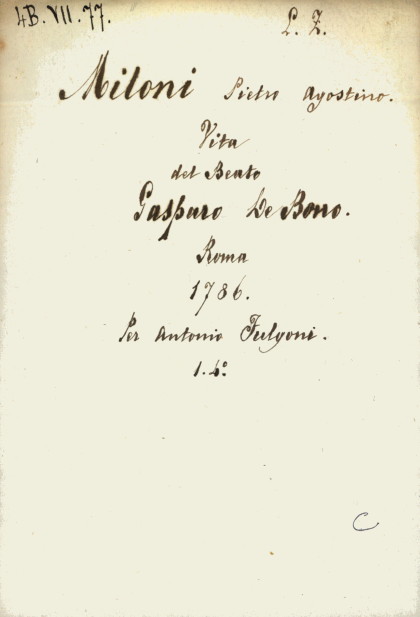 4B. VII. 77.
L. Z.
Miloni Pietro Agostino.
Vita
del Beato
Gasparo De Bono.
Roma
1786.
Per Antonio Fulgoni.
1. 4º
C